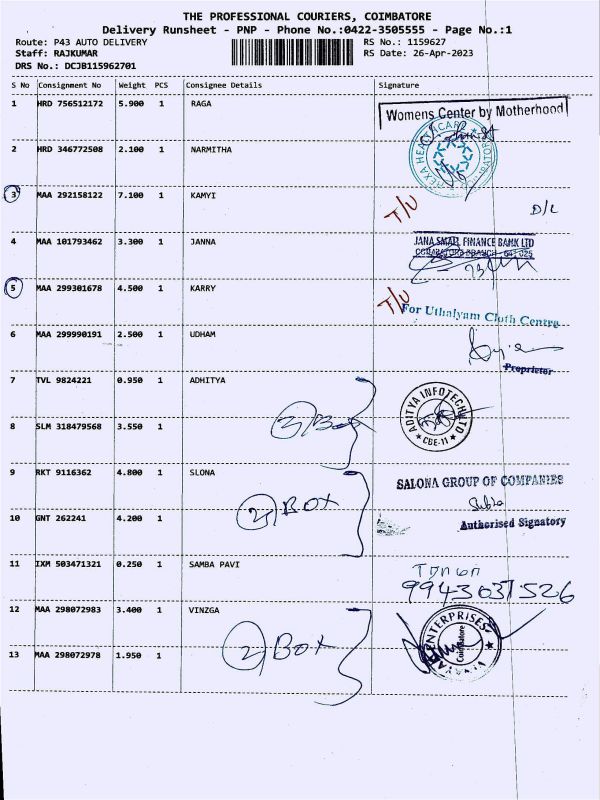 THE PROFESSIONAL COURIERS, COIMBATORE
Delivery Runsheet - PNP - Phone No.:0422-3505555 - Page No.:1
Route: P43 AUTO DELIVERY RS No.: 1159627
Staff: RAJKUMAR RS Date: 26-Apr-2023
DRS No.: DCJB115962701
S No Consignment No Weight PCS Consignee Details Signature
1 HRD 756512172 5.900 1 RAGA
Womens Center by Motherhood
2 HRD 346772508 2.100 1 NARMITHA
HEXA HEALTHCARE
3 MAA 292158122 7.100 1 KAMYI T/U D/L
4 MAA 101793462 3.300 1 JANNA
JANA SMALL FINANCE BANK LTD
COIMBATORE BRANCH - 641 025
5 MAA 299301678 4.500 1 KARRY T/U
For Uthalyam Cloth Centre
6 MAA 299990191 2.500 1 UDHAM
Proprietor
7 TVL 9824221 0.950 1 ADHITYA
ADITYA INFOTECH LTD
CBE-11
8 SLM 318479568 3.550 1
Box
9 RKT 9116362 4.800 1 SLONA
SALONA GROUP OF COMPANIES
2 Box
10 GNT 262241 4.200 1
Authorised Signatory
11 IXM 503471321 0.250 1 SAMBA PAVI
9943031526
12 MAA 298072983 3.400 1 VINZGA
ENTERPRISES
Coimbatore
2 Box
13 MAA 298072978 1.950 1